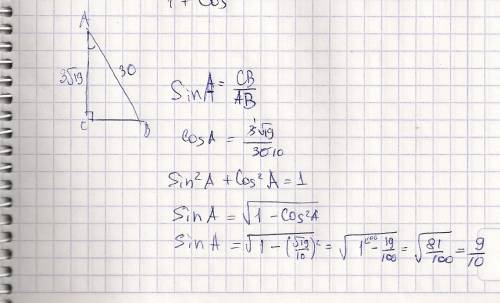 1 + Cos
A
3√19
30
C
B
Sin A = CB/AB
cos A = 3√19/30 10
Sin²A + Cos²A = 1
Sin A = √(1 - Cos²A)
Sin A = √(1 - (√19/10)²) = √(1¹⁰⁰ - 19/100) = √(81/100) = 9/10